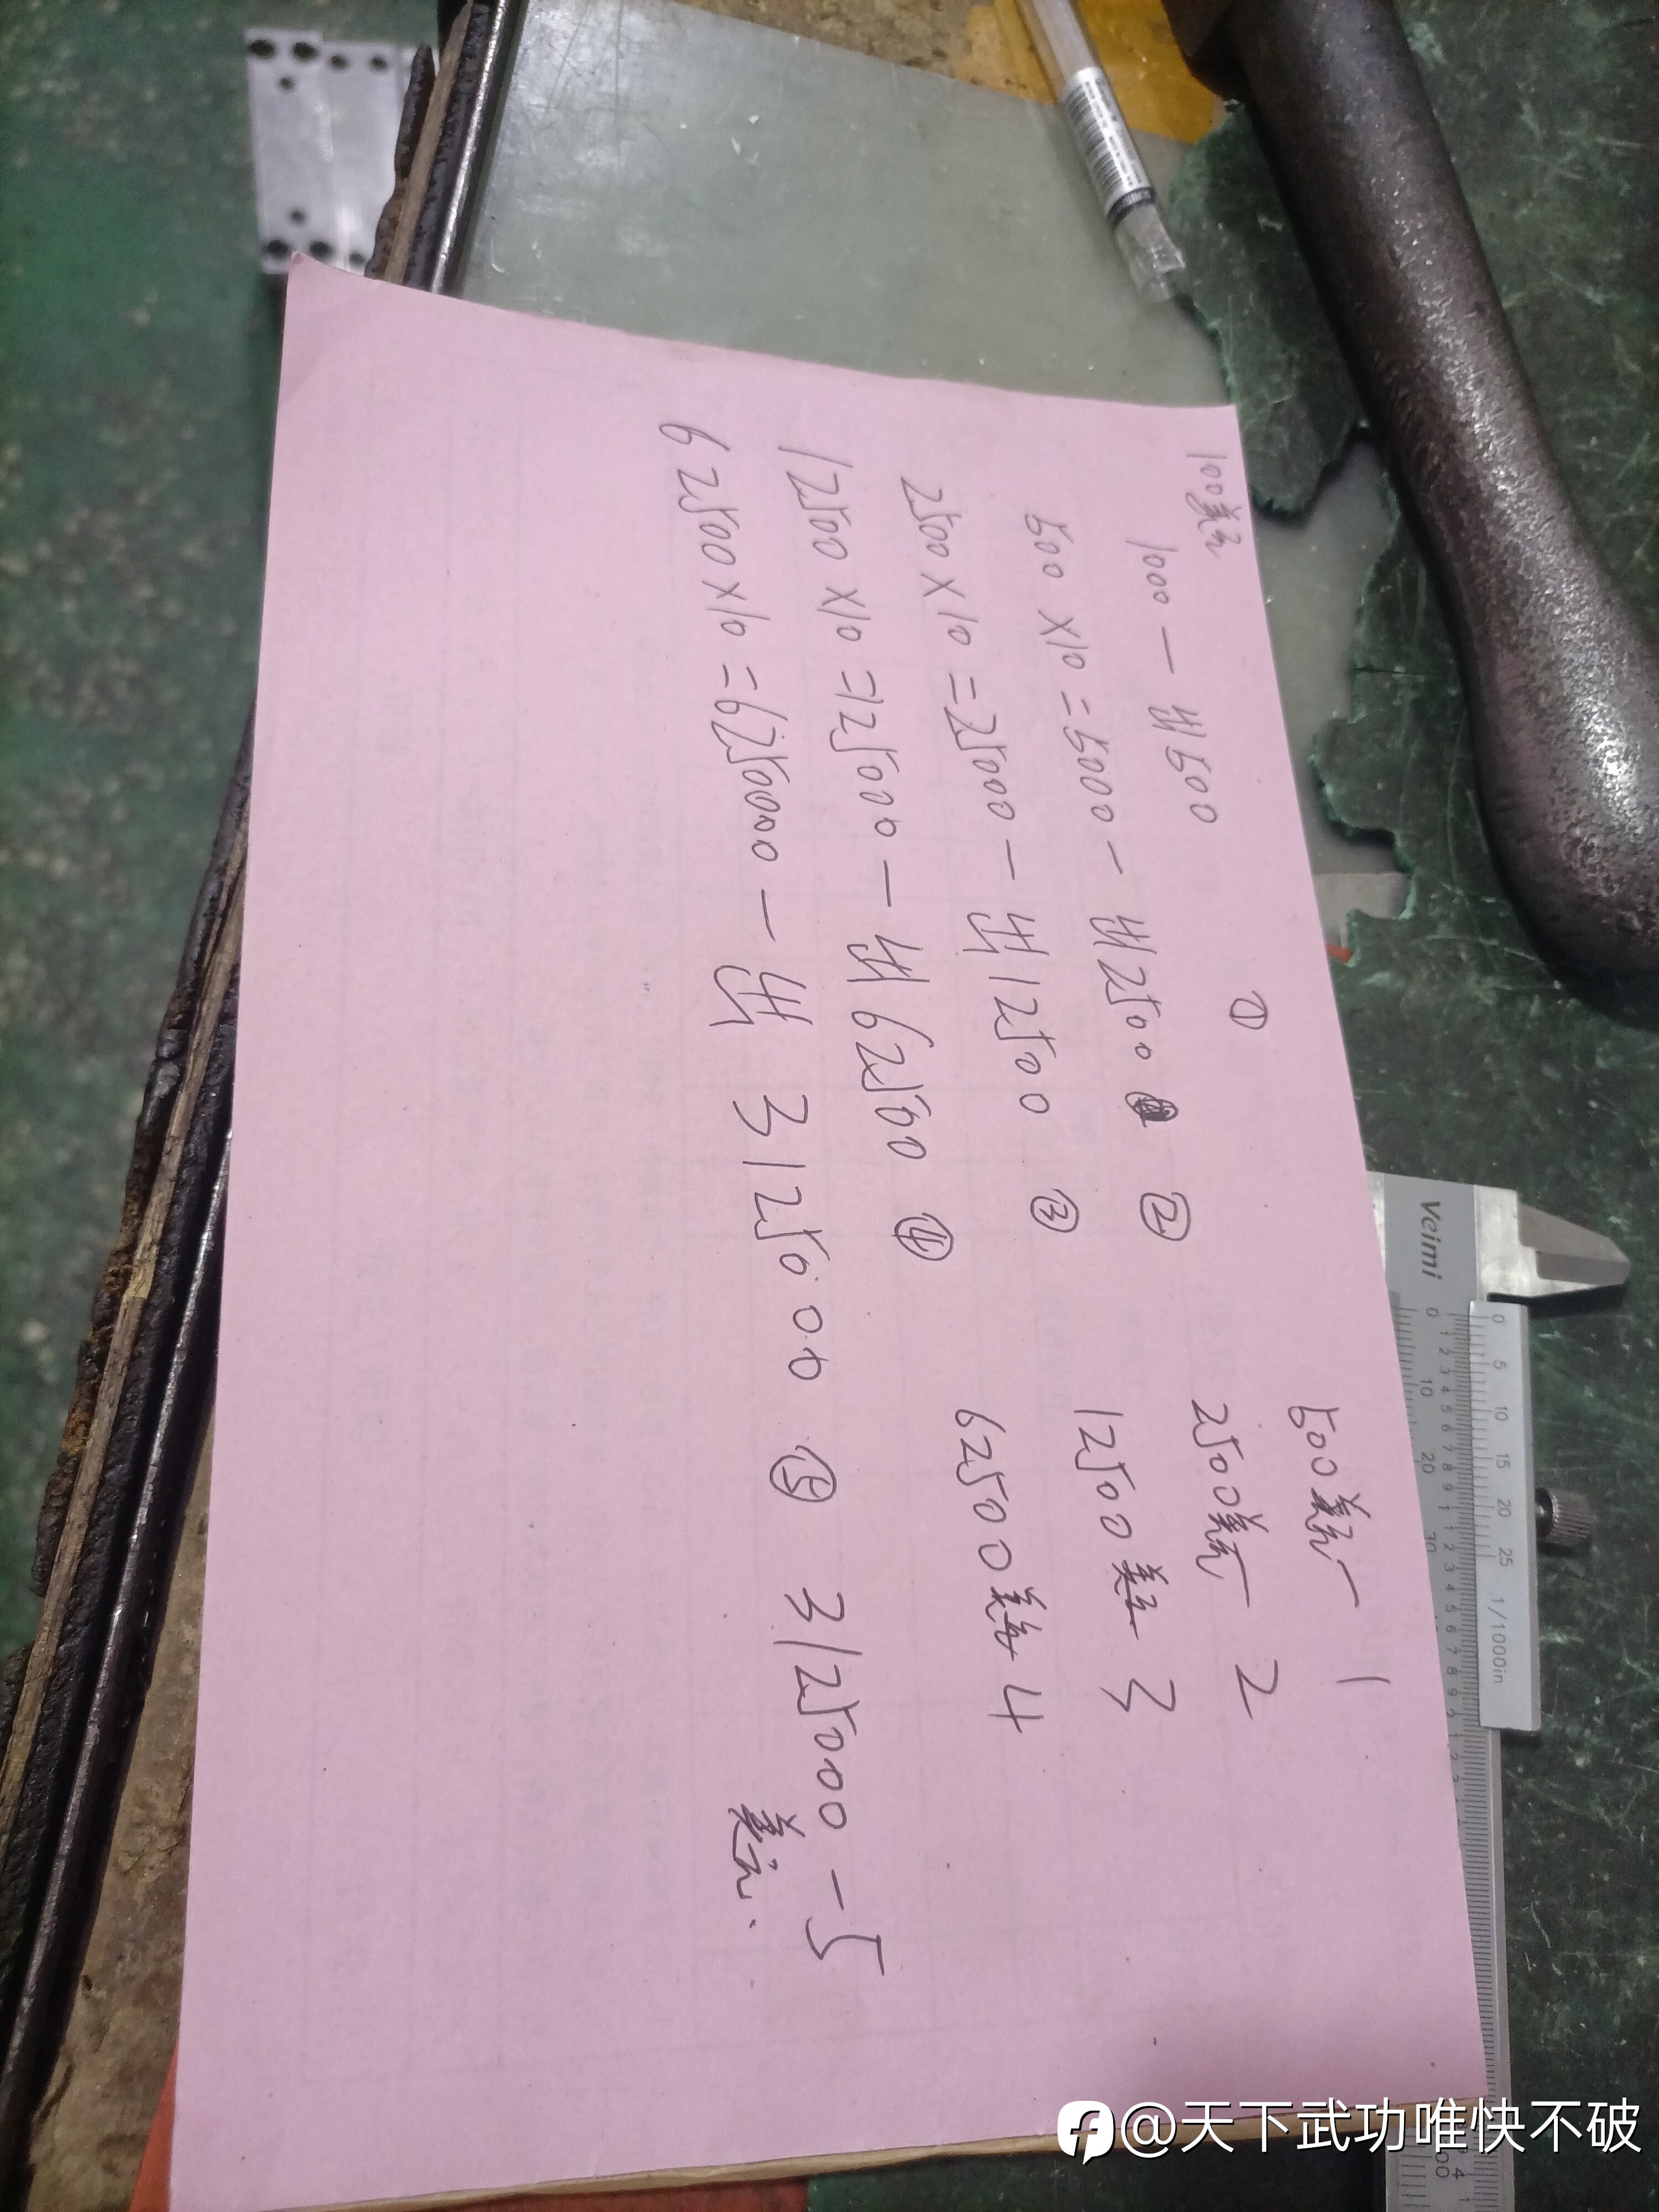 100美元
1000 — 出500 ①
500 × 10 = 5000 — 出2500 ②
2500 × 10 = 25000 — 出12500 ③
12500 × 10 = 125000 — 出62500 ④
62500 × 10 = 625000 — 出 312500 ⑤
500美元 — 1
2500美元 — 2
12500美元 3
62500美元 4
312500 — 5
美元
Veimi
0 5 10 15 20 25 1/1000in
@天下武功唯快不破